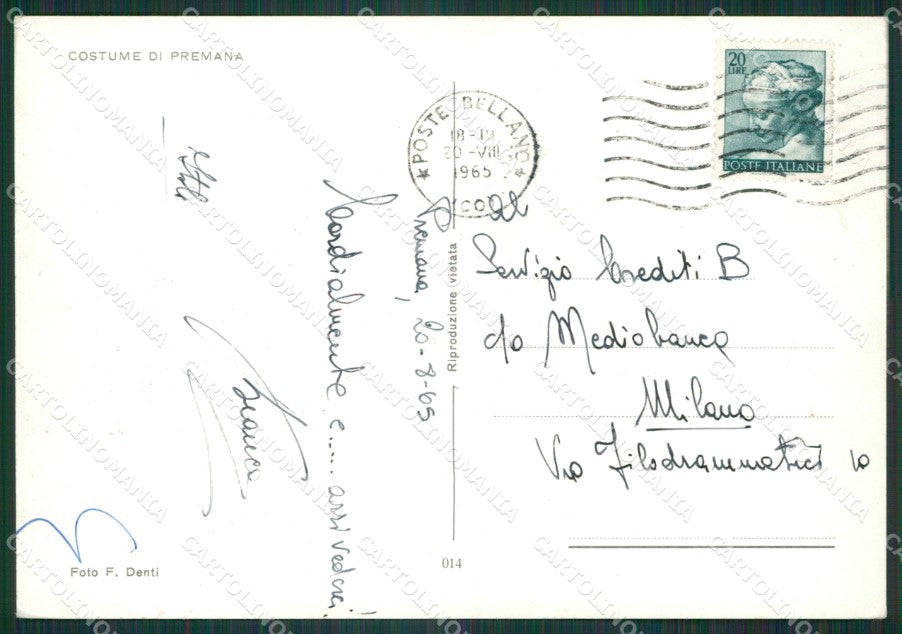 COSTUME DI PREMANA
20
LIRE
POSTE ITALIANE
POSTE BELLANO
18-19
20-VIII
1965
Premana, 20-8-65
Cordialmente e.... arrivederci!
Franca
Al
Servizio Crediti B
c/o Mediobanca
Milano
Via Filodrammatici 10
Riproduzione vietata
014
Foto F. Denti
CARTOLINOMANIA